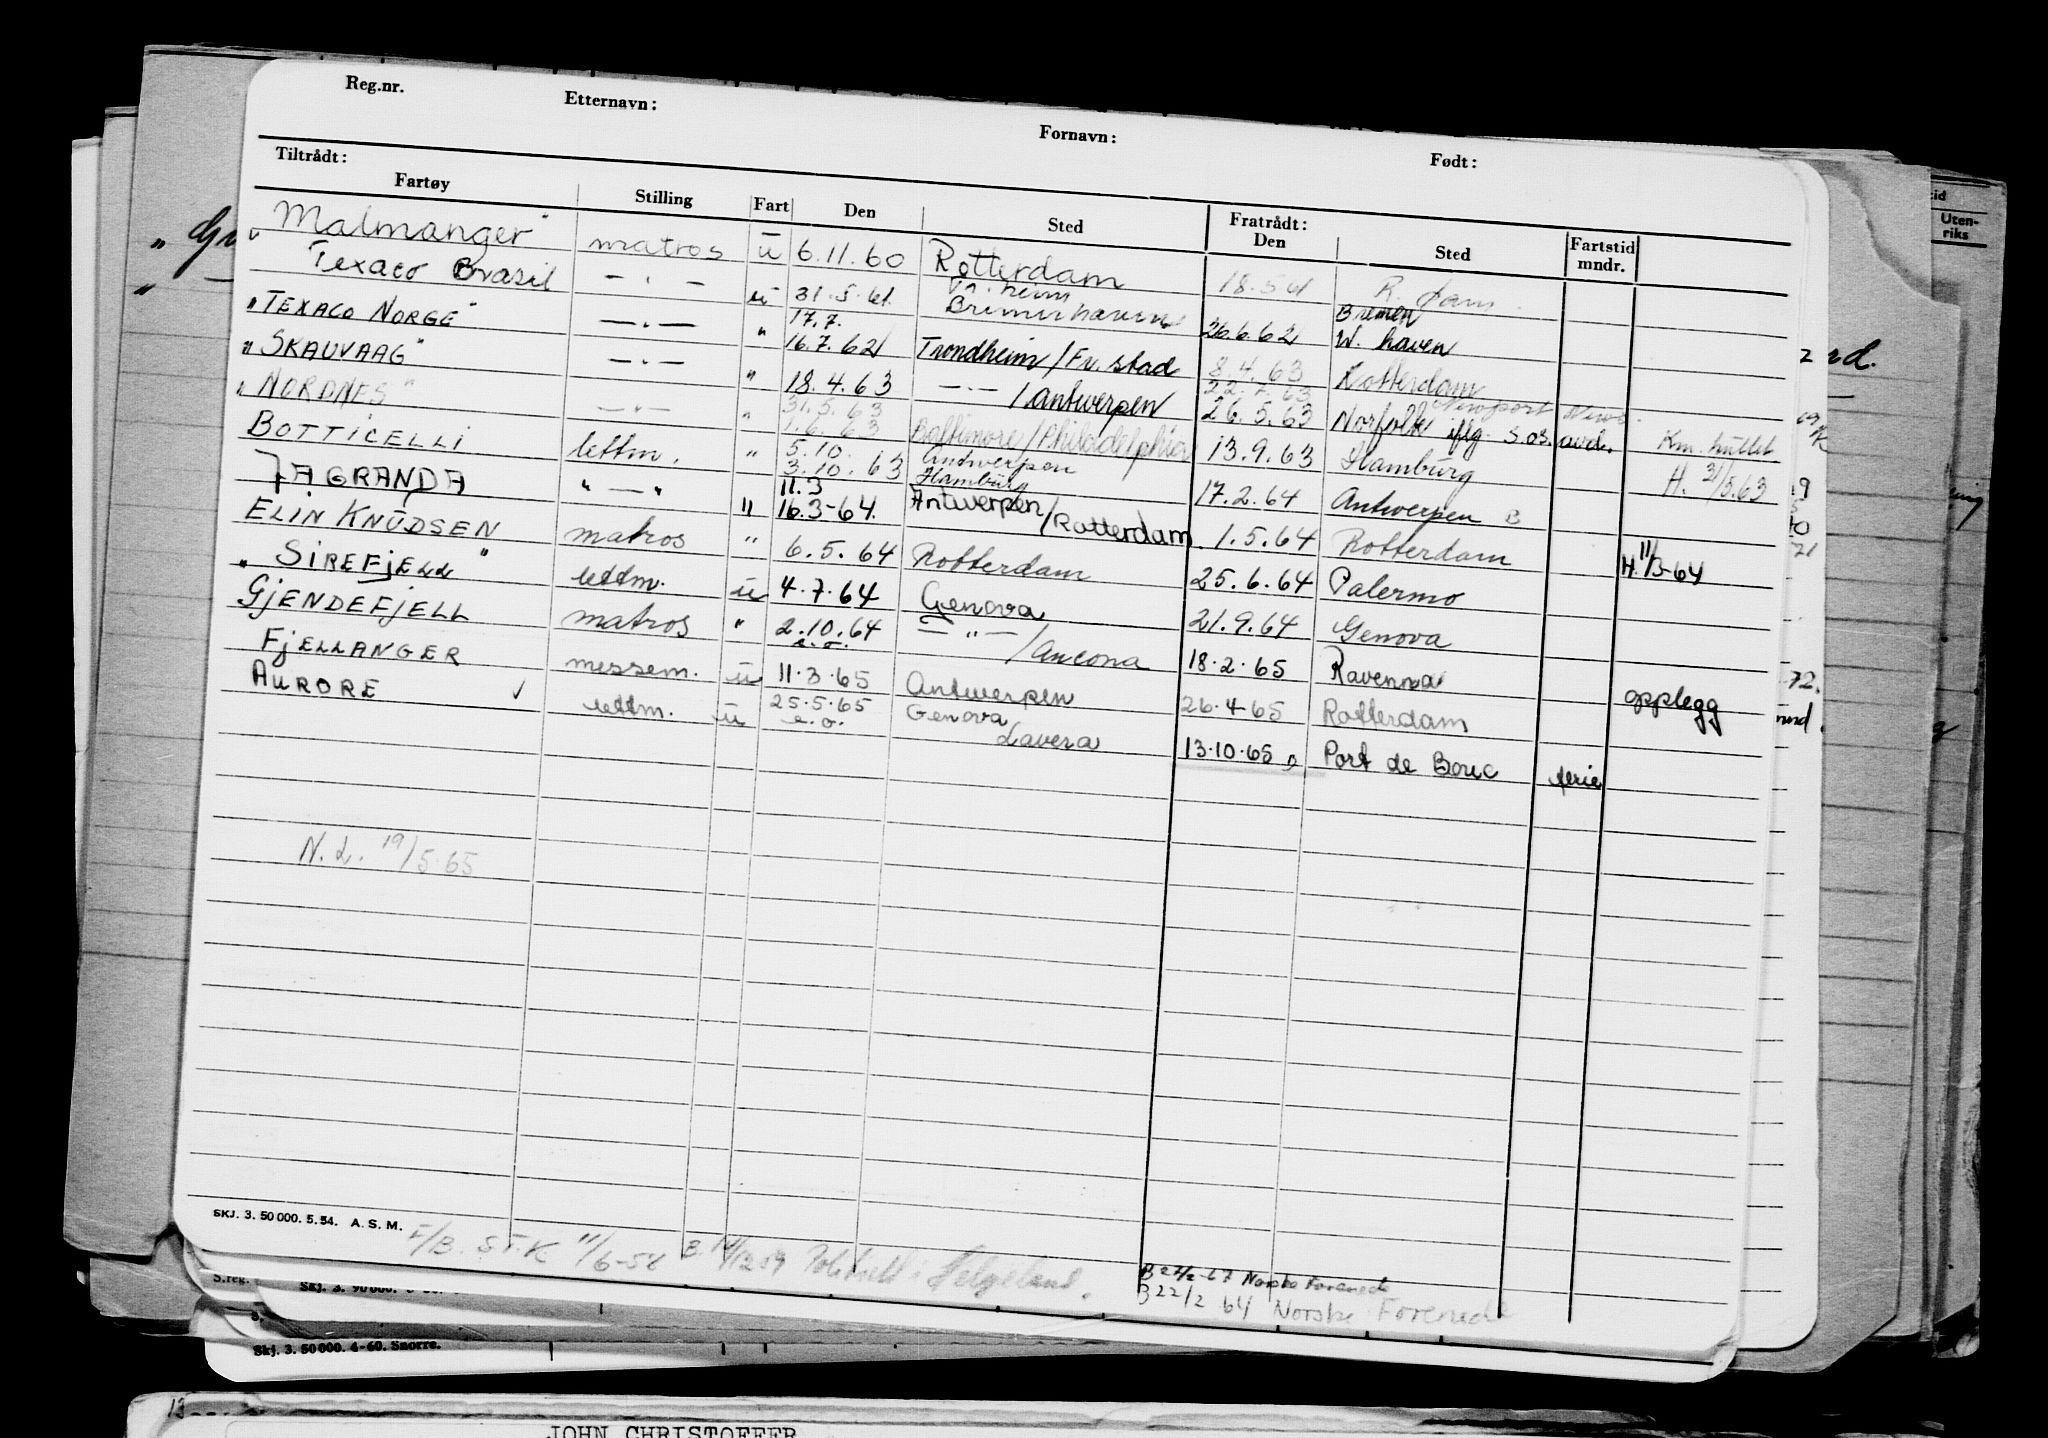 Reg.nr. Etternavn: Fornavn: Født:
Tiltrådt: Fratrådt:
Fartøy Stilling Fart Den Sted Den Sted Fartstid mndr.
"Malmanger" matros u 6.11.60 Rotterdam 18.5.61 R. dam
Texaco Brasil — " — u 31.5.61 Tr.heim Bremerhaven 26.6.62 Bremen W. haven
"TEXACO NORGE" — " — " 17.7. 16.7.62 Trondheim/Fr. stad 8.4.63 Rotterdam
"SKAUVAAG" — " — " 18.4.63 — " — / Antwerpen 22.7.63 26.5.63 Newport News Norfolk
"NORDNES" — " — " 31.5.63 1.6.63 Baltimore/Philadelphia 13.9.63 Hamburg H. 31/5.63
BOTTICELLI lettm. " 5.10. 3.10.63 Antwerpen Hamburg 17.2.64 Antwerpen B
JAGRANDA " — " " 11.3 16.3-64. Antwerpen/Rotterdam 1.5.64 Rotterdam H. 11/3-64
ELIN KNUDSEN matros " 6.5.64 Rotterdam 25.6.64 Palermo
"SIREFJELL" lettm. u 4.7.64 Genova 21.9.64 Genova
GJENDEFJELL matros " 2.10.64 e.o. — " — / Ancona 18.2.65 Ravenna opplegg
FJELLANGER messem. u 11.3.65 Antwerpen 26.4-65 Rotterdam
AURORE ✓ lettm. u 25.5.65 e.o. Genova Lavera 13.10.65 Port de Bouc ferie
N.L. 19/5.65
SKJ. 3. 50 000. 5. 54. A. S. M.
B 22/2 64 Norske Forenede
S.reg.
Skj. 3. 50 000. 4-60. Snorre.
JOHN CHRISTOFFER